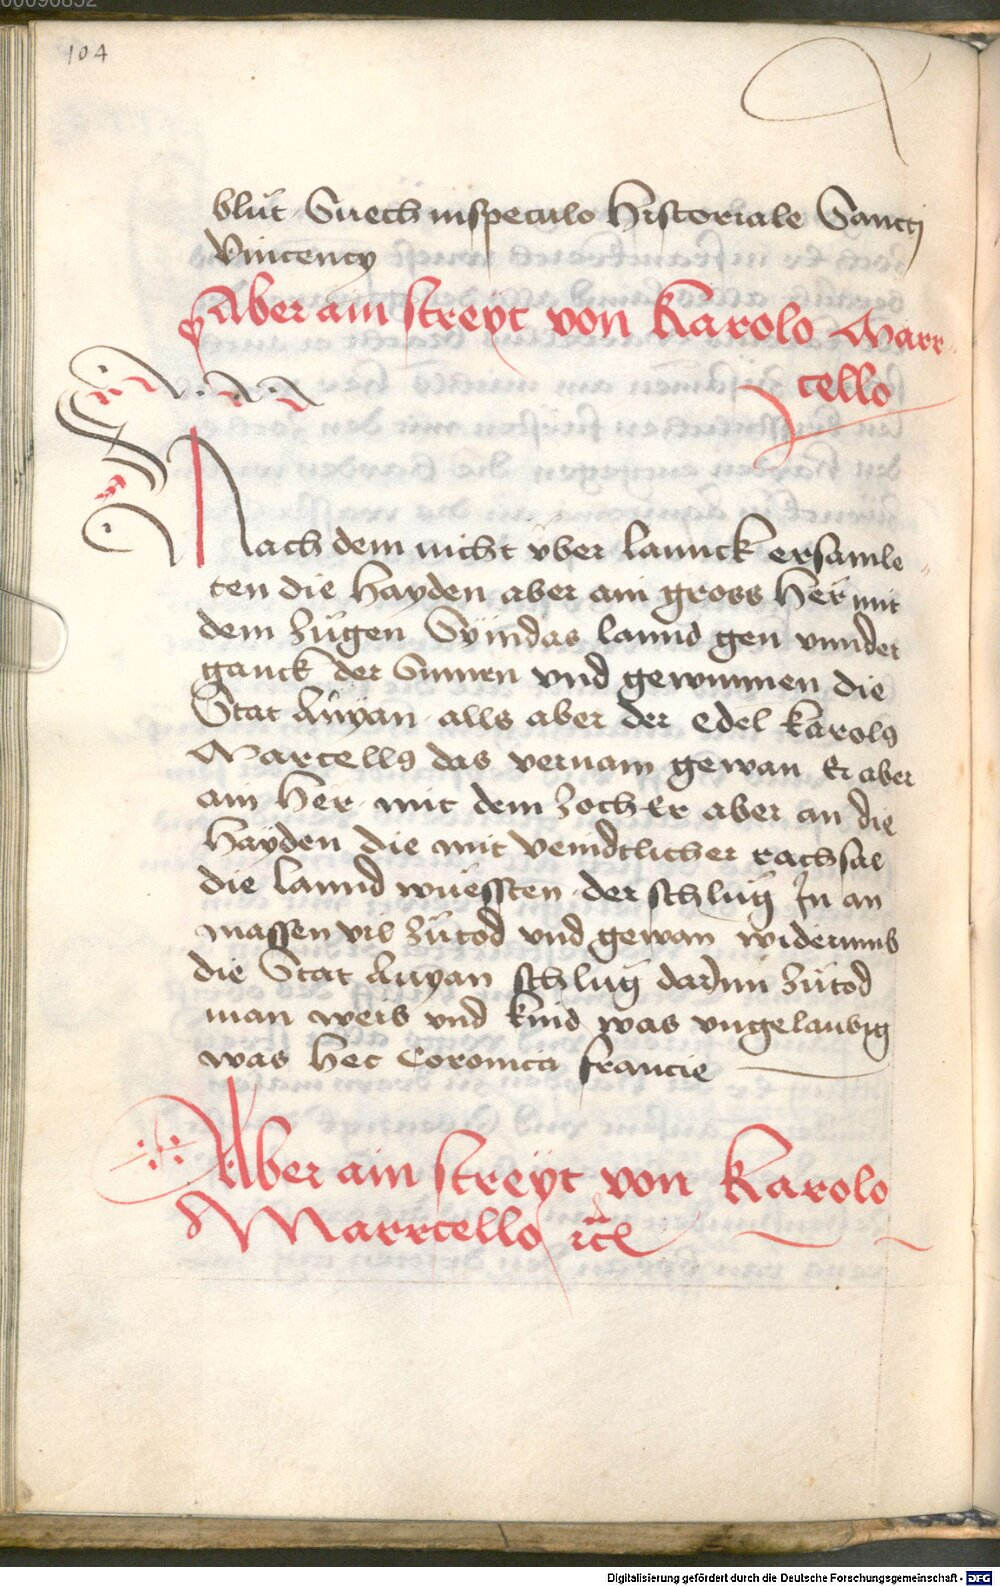 00090852
104
blůt Suech in speculo Historiale Sancti
Vincency
Aber ain streyt von Karolo Marr
cello
Nach dem nicht vber lannck ersamle
ten die Hayden aber ain gross Her mit
dem Zůgen Sy in das lannd gen vnnder
ganck der Sunnen vnd gewunnen die
Stat Auyan alls aber der edel Karolus
Marcellus das vernam gewan Er aber
ain Her mit dem Zoch Er aber an die
Hayden die mit veindtlicher rachsal
die lannd wuessten der schlůg In an
massen vil Zůtod vnd gewan widerumb
die Stat Auyan schlůg darinn Zůtod
man weib vnd kind was vngelaubig
was Hec Coronica francie
Aber ain streyt von Karolo
Marrcello
Digitalisierung gefördert durch die Deutsche Forschungsgemeinschaft - DFG